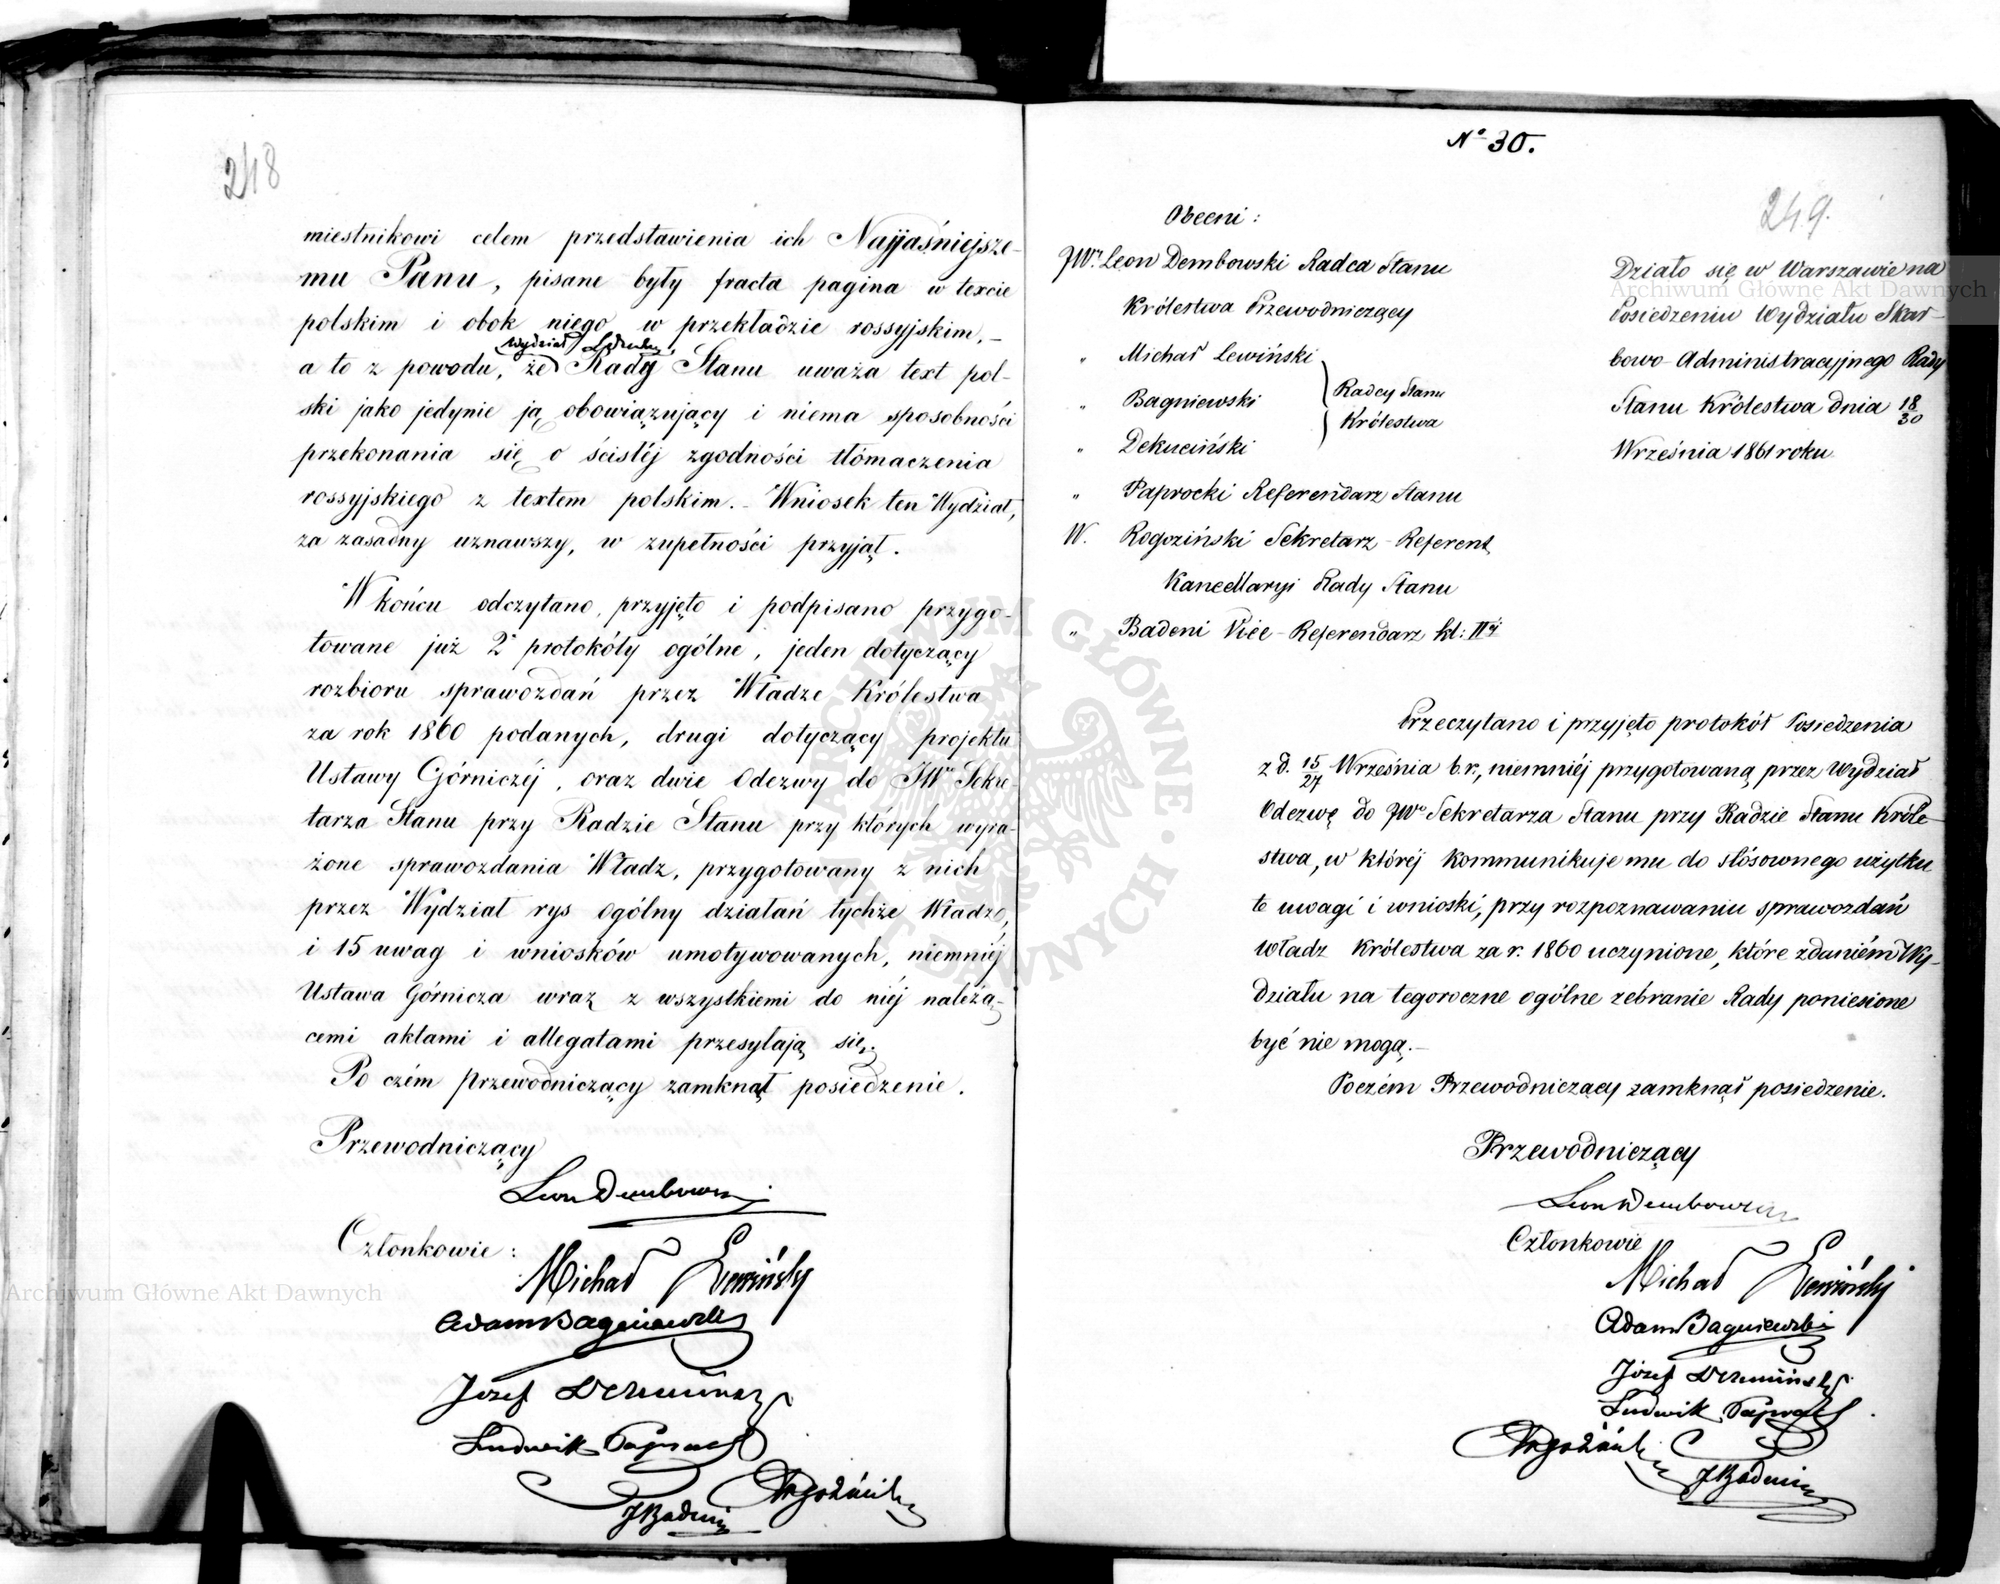 248
miestnikowi celem przedstawienia ich Najjaśniejsze-
mu Panu, pisane były fracta pagina w texcie
polskim i obok niego w przekładzie rossyjskim, –
Wydział
a to z powodu, że Rady Stanu uważa text pol-
ski jako jedynie ją obowiązujący i niema sposobności
przekonania się o ścisłéj zgodności tłómaczenia
rossyjskiego z textem polskim. – Wniosek ten Wydział,
za zasadny uznawszy, w zupełności przyjął.
W końcu odczytano, przyjęto i podpisano przygo-
towane już 2 protokóły ogólne, jeden dotyczący
rozbioru sprawozdań przez Władze Królestwa
za rok 1860 podanych, drugi dotyczący projektu
Ustawy Górniczéj, oraz dwie Odezwy do JWo Sekre-
tarza Stanu przy Radzie Stanu przy których wyra-
żone sprawozdania Władz, przygotowany z nich
przez Wydział rys ogólny działań tychże Władz,
i 15 uwag i wniosków umotywowanych, niemniéj
Ustawa Górnicza wraz z wszystkiemi do niéj należą-
cemi aktami i allegatami przesyłają się.
Po czém Przewodniczący zamknął posiedzenie.
Przewodniczący
Leon Dembowski
Członkowie:
Michał Lewiński
Adam Bagniewski
Józef Dekuciński
Ludwik Paprocki
Rogoziński
J Badeni
No 30.
249.
Obecni:
JWi Leon Dembowski Radca Stanu
Królestwa Przewodniczący
" Michał Lewiński
" Bagniewski
" Dekuciński
Radcy Stanu
Królestwa
" Paprocki Referendarz Stanu
W. Rogoziński Sekretarz – Referent
Kancellaryi Rady Stanu
" Badeni Vice – Referendarz kl: IIéj
Działo się w Warszawie na
Posiedzeniu Wydziału Skar-
bowo – Administracyjnego Rady
Stanu Królestwa dnia 18/30
Września 1861 roku
Przeczytano i przyjęto protokół Posiedzenia
z d. 15/27 Września b.r., niemniéj przygotowaną przez Wydział
Odezwę do JWo Sekretarza Stanu przy Radzie Stanu Króle-
stwa, w któréj kommunikuje mu do stósownego użytku
te uwagi i wnioski, przy rozpoznawaniu sprawozdań
władz Królestwa za r. 1860 uczynione, które zdaniém Wy-
działu na tegoroczne ogólne zebranie Rady poniesione
być nie mogą. –
Poczém Przewodniczący zamknął posiedzenie.
Przewodniczący
Leon Dembowski
Członkowie
Michał Lewiński
Adam Bagniewski
Józef Dekuciński
Ludwik Paprocki
Rogoziński
J Badeni
Archiwum Główne Akt Dawnych
Archiwum Główne Akt Dawnych
ARCHIWUM GŁÓWNE AKT DAWNYCH